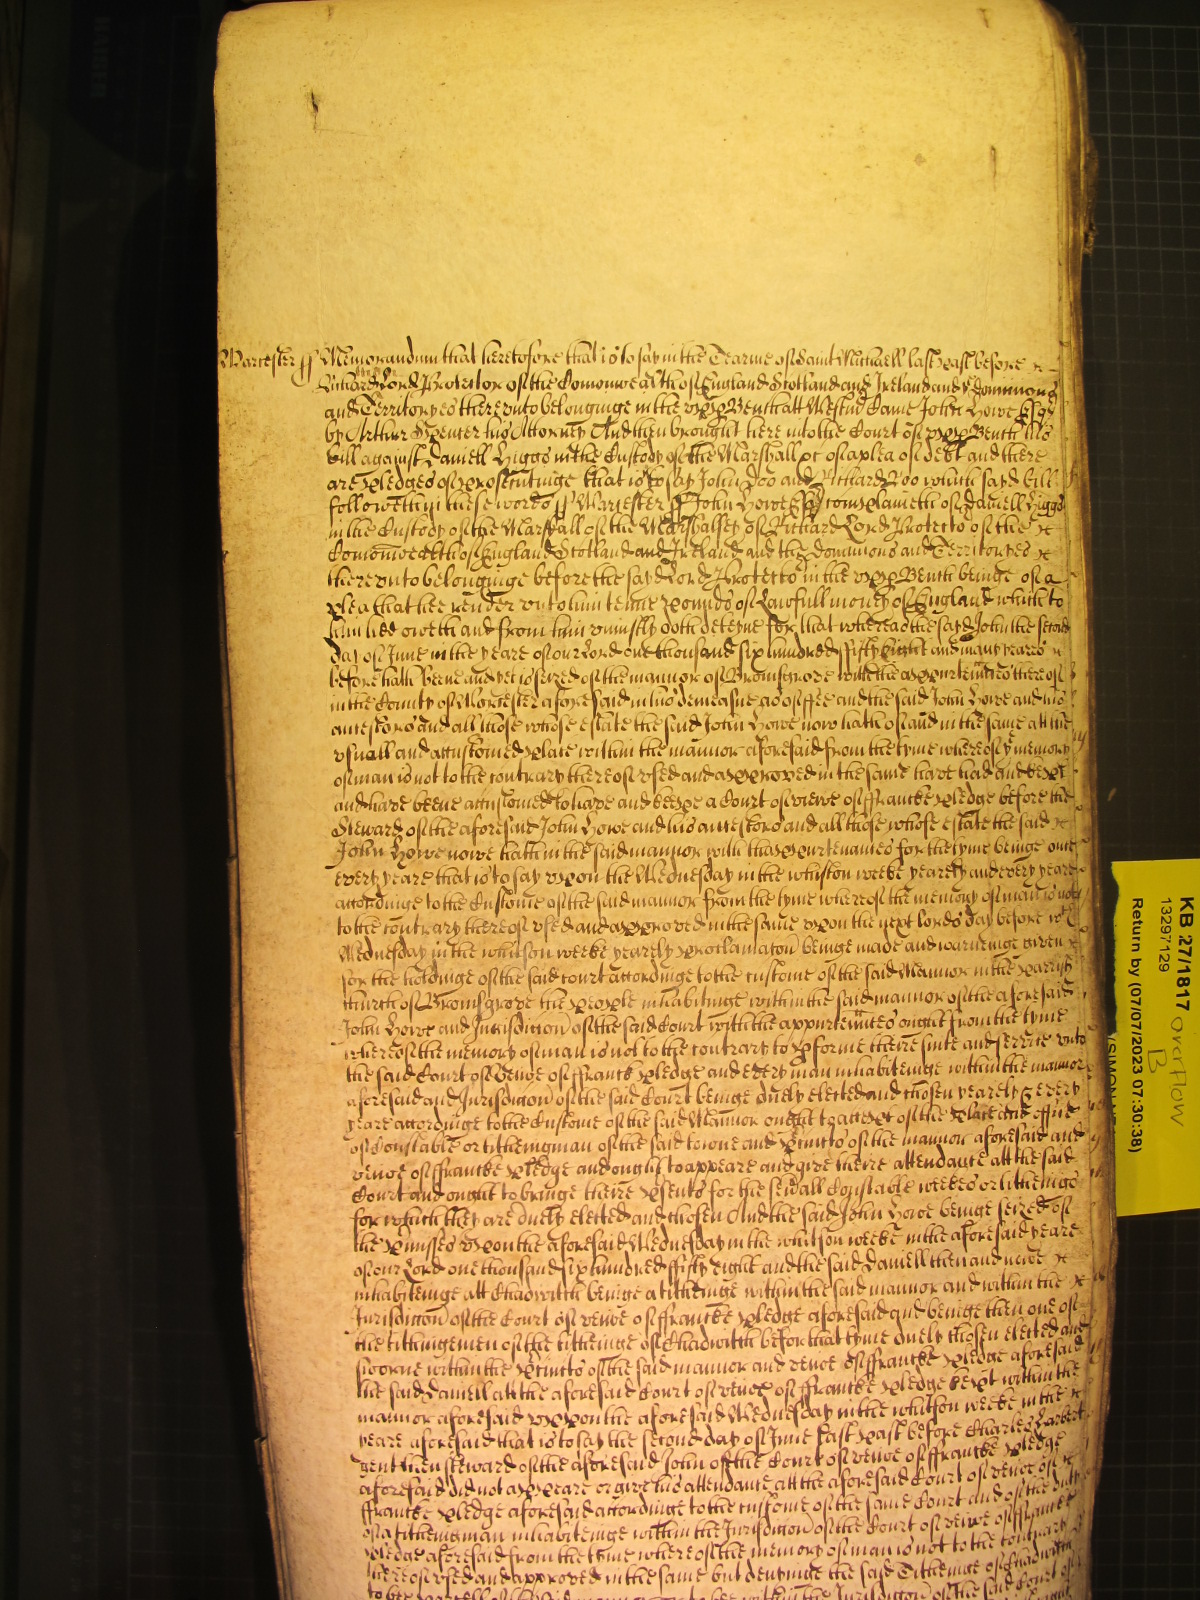 Worcester ss Memorandum that heretofore that is to say in the Tearme of Saint Michaell last past before
Richard Lord Protector of the Comonwealth of England Scotland and Ireland and the dominions
and Territoryes thereunto belonginge in the upp Bench att Westm Came John Howe Esqr
by Arthur his Attorney And then brought here into the Court of upp Bench his
bill against Daniell Higgs in the Custody of the Marshall &c of a plea of debt and there
are pledges of prosecutinge that is to say John Doo and Richard Roo which said bill
followeth in these words ss Worcester ss John Howe Esqr complaineth of Daniell Higgs
in the Custody of the Marshall of the Marshallsey of Richard Lord Protector of the
Comonwealth of England Scotland and Ireland and the dominions and Territoryes
thereunto belonginge before the said Lord Protector in the upp Bench beinge of a
plea that hee render unto him tenne pounds of Lawfull money of England which to
him hee oweth and from him uniustly doth deteyne for that whereas the said John the second
day of June in the yeare of our Lord one thousand six hundred fifty Eight and many yeares
before hath beene and yet is seized of the mannor of Bromsgrove with the appurtenances thereof
in the County of Worcester aforesaid in his demeasne as of ffee and the said John Howe and his
ancestors and all those whose estate the said John Howe now hath of and in the same att the
usuall and accustomed place within the mannor aforesaid from the tyme whereof ye memory
of man is not to the contrary thereof used and approved in the same have had and kept
and have beene accustomed to have and keepe a Court of viewe of ffrancke pledge before the
Steward of the aforesaid John Howe and his ancestors and all those whose estate the said
John Howe nowe hath in the said mannor with thappurtenances for the tyme beinge once
every yeare that is to say upon the Wednesday in the whitson weeke yearely and every yeare
accordinge to the Custome of the said mannor from the tyme whereof the memory of man is not
to the contrary thereof used and approved in the same upon the next lords day before
Wednesday in the whitson weeke yearely proclamacon beinge made and warneinge given
for the holdinge of the said court accordinge to the custome of the said Mannor in the parrish
church of Bromsgrove the people inhabitinge within the said mannor of the aforesaid
John Howe and Jurisdiction of the said Court with the appurtenances ought from the tyme
whereof the memory of man is not to the contrary to pforme theire suite and service unto
the said Court of Vewe of ffranck pledge and every man inhabiteinge within the mannor
aforesaid and Jurisdiction of the said Court beinge duely elected and chosen yearely every
yeare accordinge to the Custome of the said Mannor ought to accept of the place and office
of Constable or tithingman of the said towne and pcincts of the mannor aforesaid and
vewe of ffrancke pledge and ought to appeare and give theire attendance att the said
Court and ought to bringe theire psents for the sevall Constable weekes or litheings
for which they are duely elected and chosen And the said John Howe beinge seized of
the pmisses upon the aforesaid Wednesday in the whitson weeke in the aforesaid yeare
of our Lord one thousand six hundred fifty eight and the said Daniell then and nowe
inhabiteinge att Chadwich beinge a titheinge within the said mannor and within the
Jurisdiction of the Court of vewe of francke pledge aforesaid and beinge then one of
the tithingemen of the titheinge of Chadwich before that tyme duely chosen elected and
sworne within the pcincts of the said mannor and vewe of ffrancke pledge aforesaid
the said Daniell att the aforesaid Court of vewe of ffrancke pledge kept within the
mannor aforesaid uppon the aforesaid Wednesday in the whitson weeke in the
yeare aforesaid that is to say the second day of June last past before Charles
gent then steward of the aforesaid John of the Court of vewe of ffrancke pledge
aforesaid did not appeare or give his attendance att the aforesaid Court of vewe of
ffrancke pledge aforesaid accordinge to the custome of the same Court and of the
of a titheingman inhabiteinge within the Jurisdiction of the Court of viewe of ffrancke
pledge aforesaid from the tyme whereof the memory of man is not to the contrary
thereof used and approved in the same but denyinge the said Titheinge of Chadwich
to bee parcell of the said mannor to bee within the Jurisdiction of the said Court of
KB 27/1817
13297129
overflow
B
Return by (07/07/2023 07:30:38)